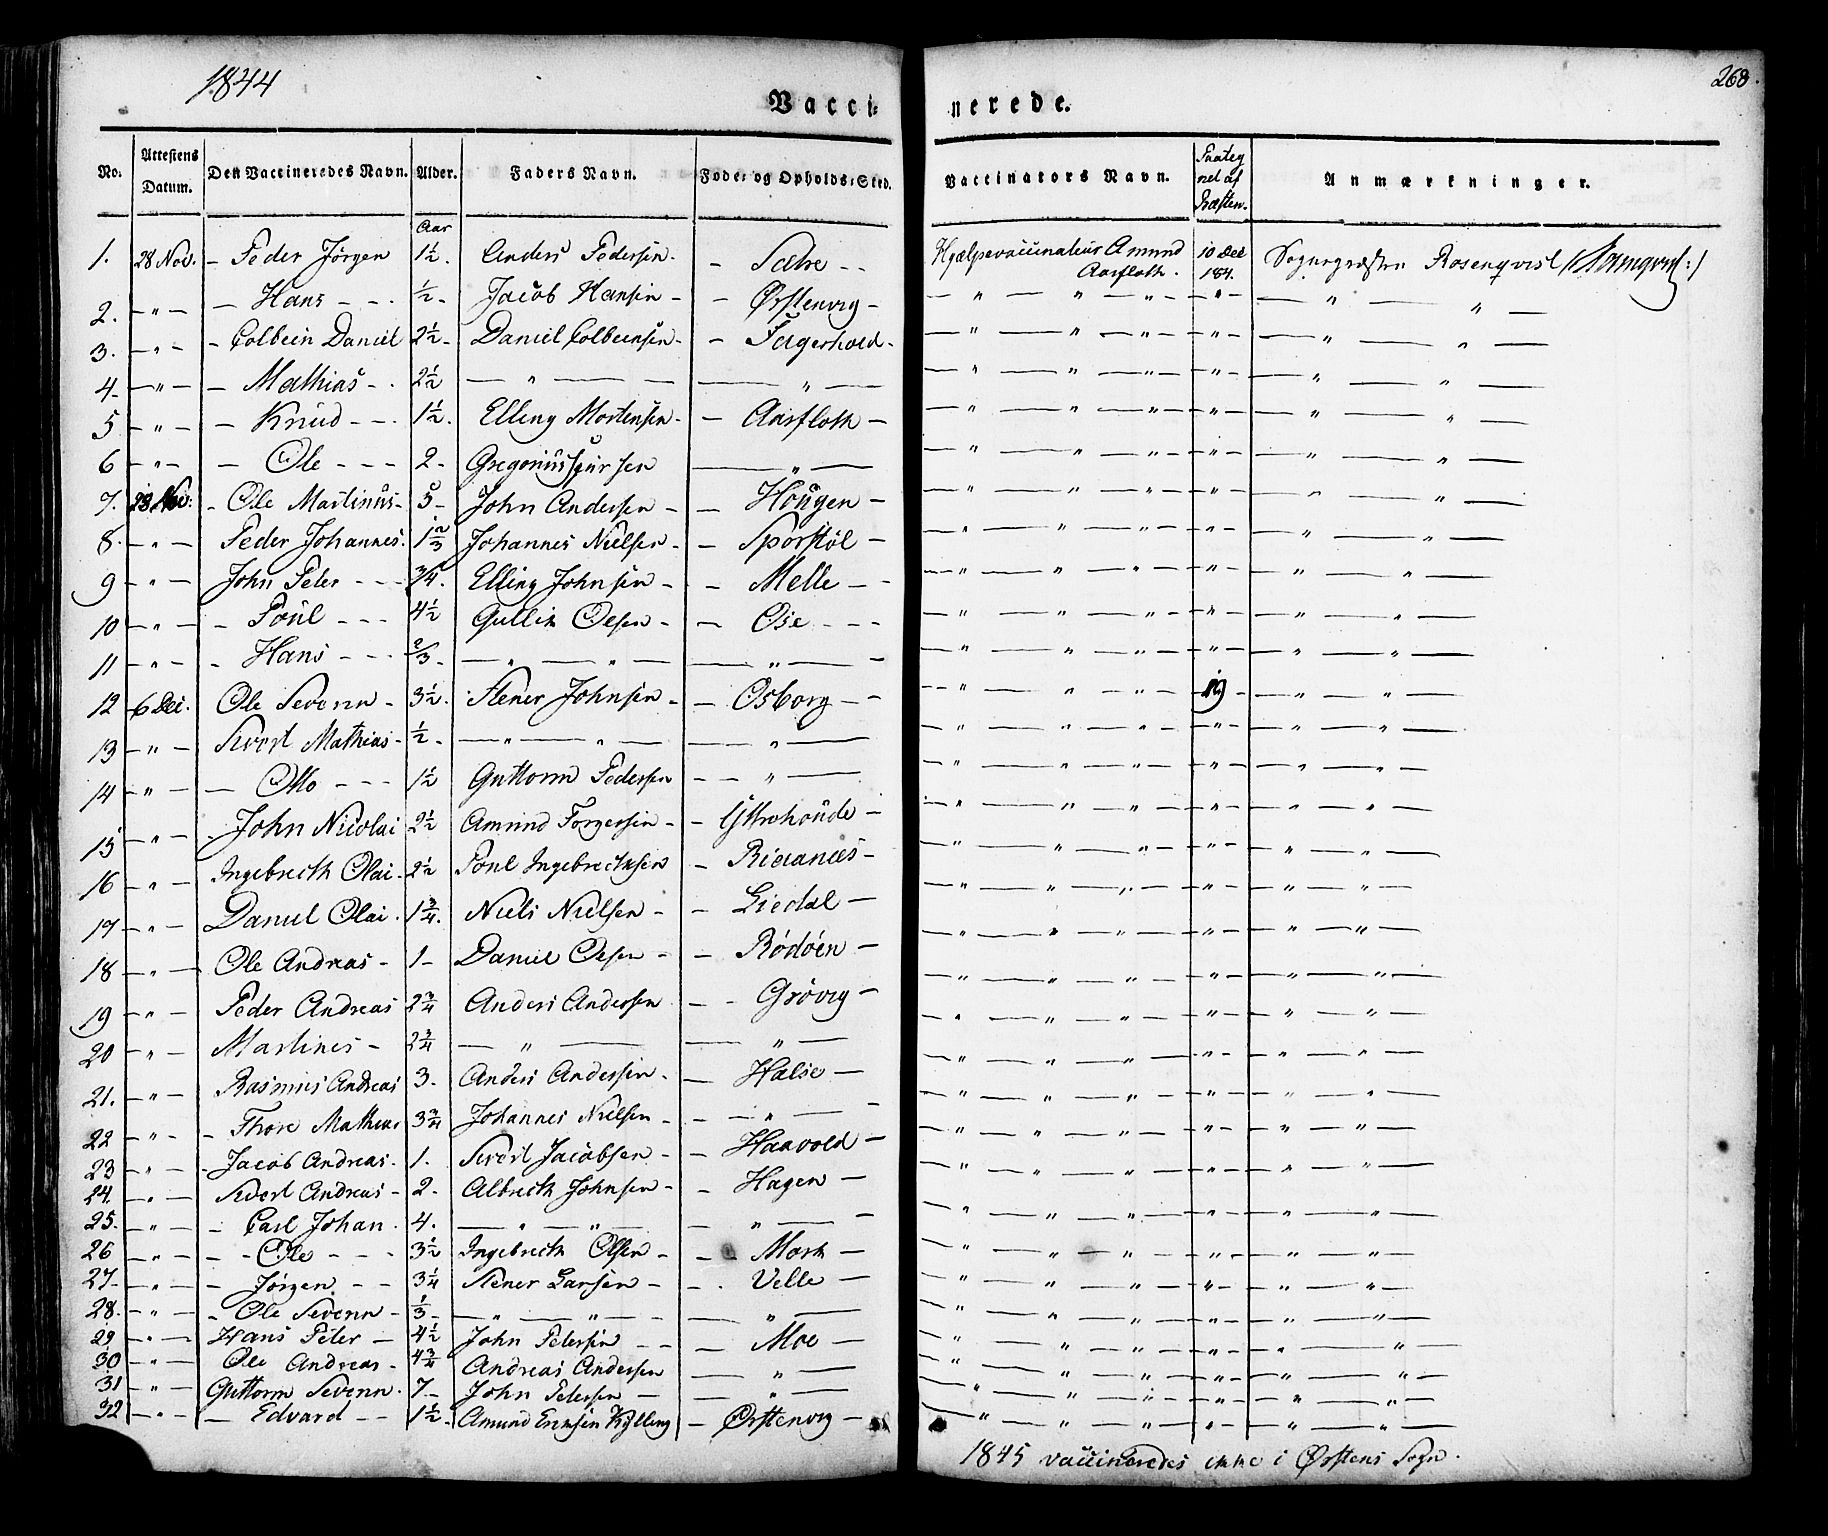 1844
268.
Vacci-
nerede.
No. Attestens Datum. Den Vaccineredes Navn. Alder. Faders Navn. Føde- og Opholds-Sted. Vaccinators Navn. Paateg nel af Præsten. Anmærkninger.
Aar
1. 28 Nov. – Peder Jørgen 1½. Anders Pedersen. – Sætre – – Hjælpevaccinateur Amund Aarfloth. 10 Dec 184. Sognepræsten Rosenqvist
2. – " – – Hans – – . ½ – Jacob Hansen – – Ørstenvig – – " – " – " – – " – – " – " –
3. – " – – Colbein Daniel 2½ – Daniel Colbeensen – – Fagerhold – – " – " – " – – " – – " – " –
4 – " – – Mathias – . 2½ – " – – " – " – " – " – – " – – " – " –
5 – " – – Knud – – . 1½. Elling Mortensen – – Aarfloth – – " – " – " – – " – – " – "
6 – " – – Ole – – – 2 – Gregorius – " – – " – " – " – – " – – " – " –
7. 28 Nov. – Ole Martinus – 5 – John Andersen – – Hougen – – " – " – " – – " – – " – " –
8. – " – Peder Johannes. 1⅔ Johannes Nielsen – – Sporstøl – – " – " – " – – " – – " – " –
9 – " – John Peter – – – ¾. Elling Johnsen – – Melle – – – " – " – " – – " – – " – " –
10 – " – – Poul – – – 4½ Gullik Olsen – – Ose – – – – " – " – " – – " – – " – " –
11 – " – – Hans – – – ⅔ – – " – " – – " – – – " – " – " – – " – – " – " –
12 6 Dec. Ole Severin – 3½. Stener Johnsen – – Osborg – – " – " – " – – 19 – – " – "
13 – " – Sivert Mathias – ½ – – " – " – – " – – " – " – " – – " – – " – " –
14 – " – – Otto – – – 1½ Guttorm Pedersen – – " – – " – " – " – – " – – " – " –
15 – " – – John Nicolai 2½ Amund Torgersen – – Yttrehoude – – " – " – " – – " – – " – " –
16 – " – Ingebrecth Olai. 2½ Poul Ingebrecthsen – Rieianæs – – " – " – " – – " – – " – " –
17 – " – Daniel Olai. 1¾. Niels Nielsen – – Liedal – – " – " – " – – " – – " – " –
18 – " – Ole Andreas – 1 – Daniel Olsen – – Rödöen – – " – " – " – – " – – " – " –
19 – " – Peder Andreas 2¾ Anders Andersen – – Grövig – – " – " – " – – " – – " – " –
20 – " – Martines – 2¾ – " – – " – – " – " – " – – " – – " – " –
21. – " – Rasmus Andreas 3. Anders Andersen – – Halse – – " – " – " – – " – – " – " –
22 – " – – Thore Mathias 3¾ Johannes Nielsen – – " – – – " – " – " – – " – – " – " –
23 – " – – Jacob Andreas – 1. Sivert Jacobsen – – Haavold – – " – " – " – – " – – " – " –
24. – " – Sivert Andreas – 2. Albrecth Johnsen – – Hagen – – " – " – " – – " – – " – " –
25. – " – – Carl Johan. 4. – " – " – – " – – – " – " – " – – " – – " – " –
26 – " – – – Ole – – – 3½ Ingebrecth Olsen – – – Mork – – " – " – " – – " – – " – " –
27 – " – – Jörgen – – 3¼ Stener Larsen – – . Velle – – " – " – " – – " – – " – " –
28. – " – – Ole Severin – ⅓ – – " – " – – " – – " – " – " – – " – – " – " –
29 – " – Hans Peter – 4½ John Petersen – – – Moe – – " – " – " – – " – – " – " –
30 – " – Ole Andreas – 4¾ Andreas Andersen – " – – " – " – " – – " – – " – " –
31 – " – Guttorm Severin. 7 – John Petersen – – " – – " – " – " – – " – – " – " –
32 – " – – Edvard – – 1½ – Amund Ericksen Kylling – Ørstenvig – – " – " – " – – " – – " – " –
1845 vaccineredes ikke i Ørstens Sogn.